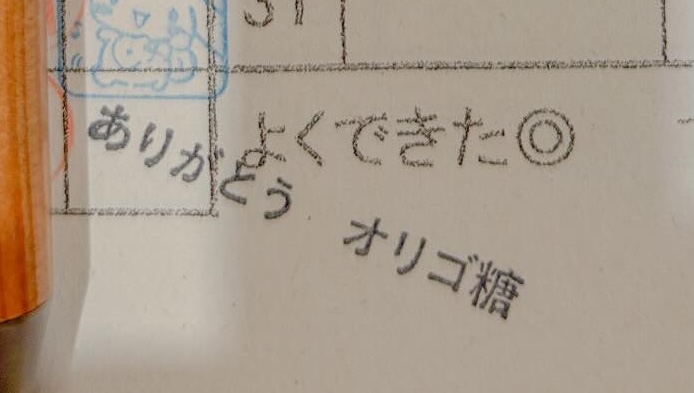 31
よくできた◎
ありがとう
オリゴ糖